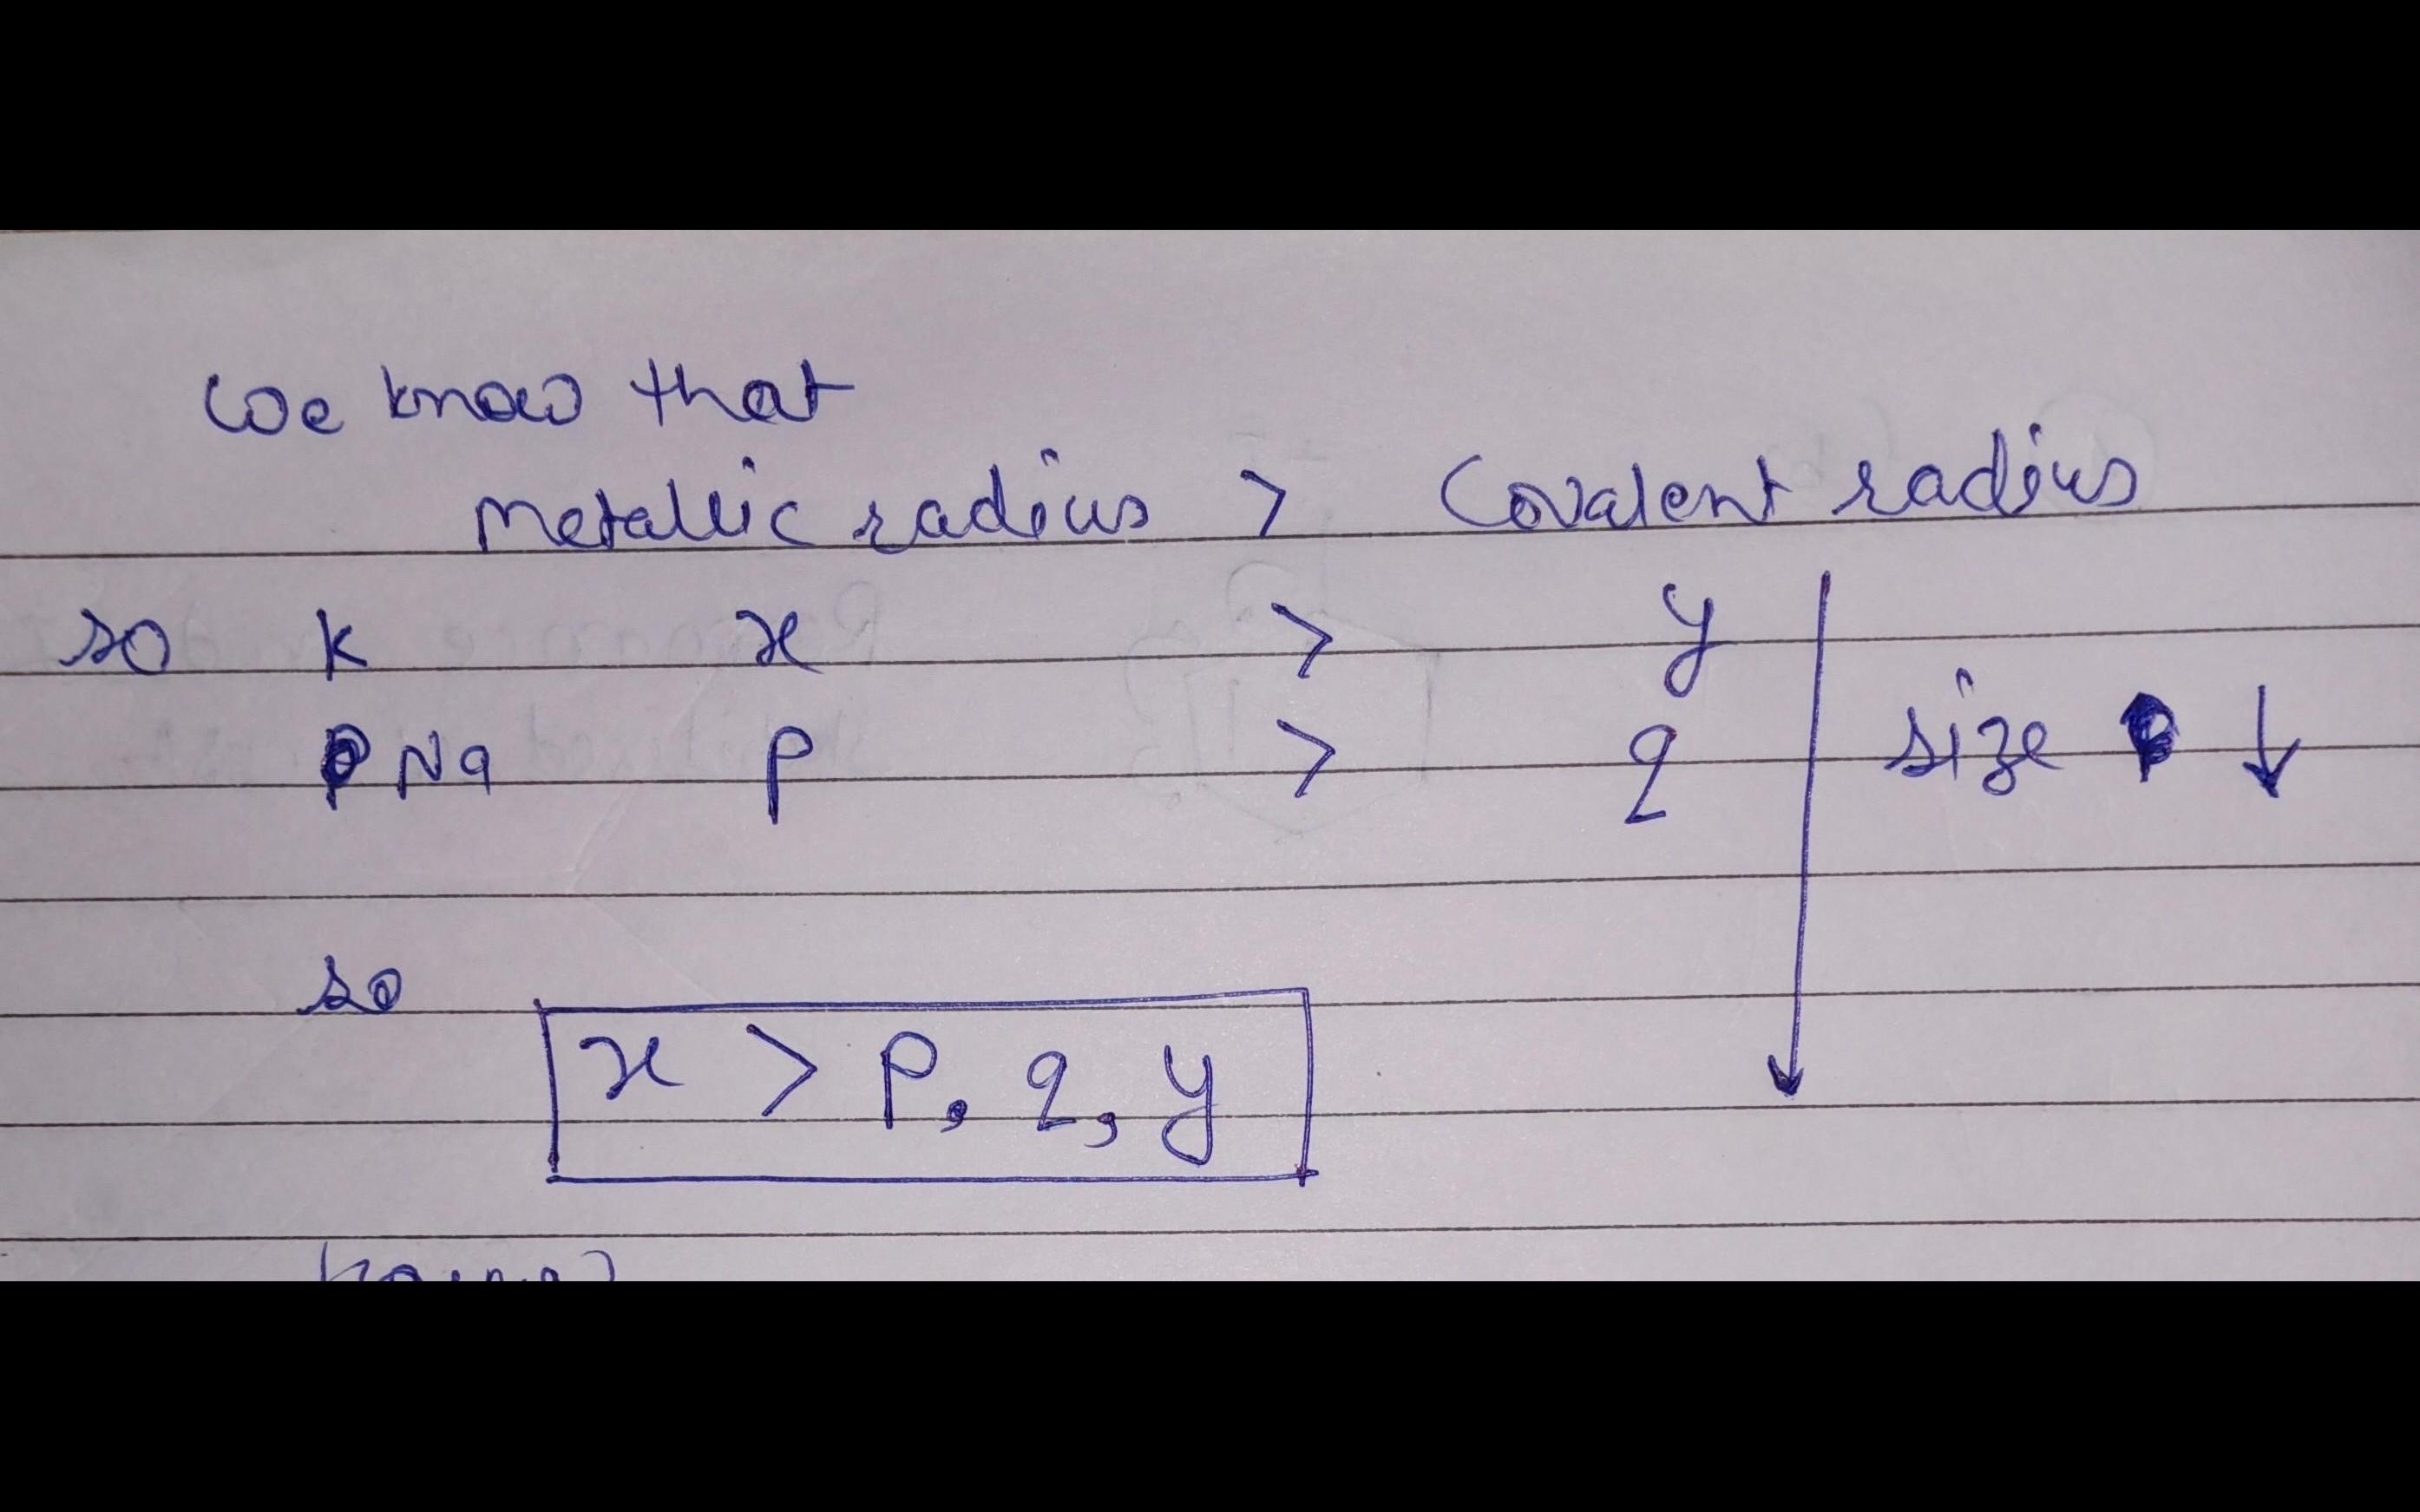 We know that
Metallic radius > Covalent radius
so K x > y
Na p > q size ↓
so
x > p, q, y